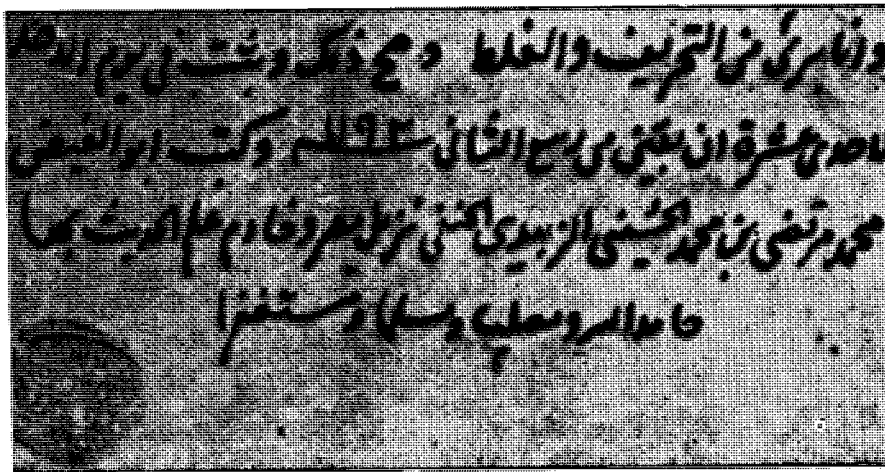 وانا برئ من التحريف والغلط وصح ذلك وثبت في يوم الاحد
حادى عشرة ان بقين من ربيع الثاني سنة ١١٩٣ وكتب ابو الفيض
محمد مرتضى بن محمد الحسيني الزبيدي الحنفي نزيل مصر وخادم علم الحديث بها
حامدا لله ومصليا ومسلما ومستغفرا